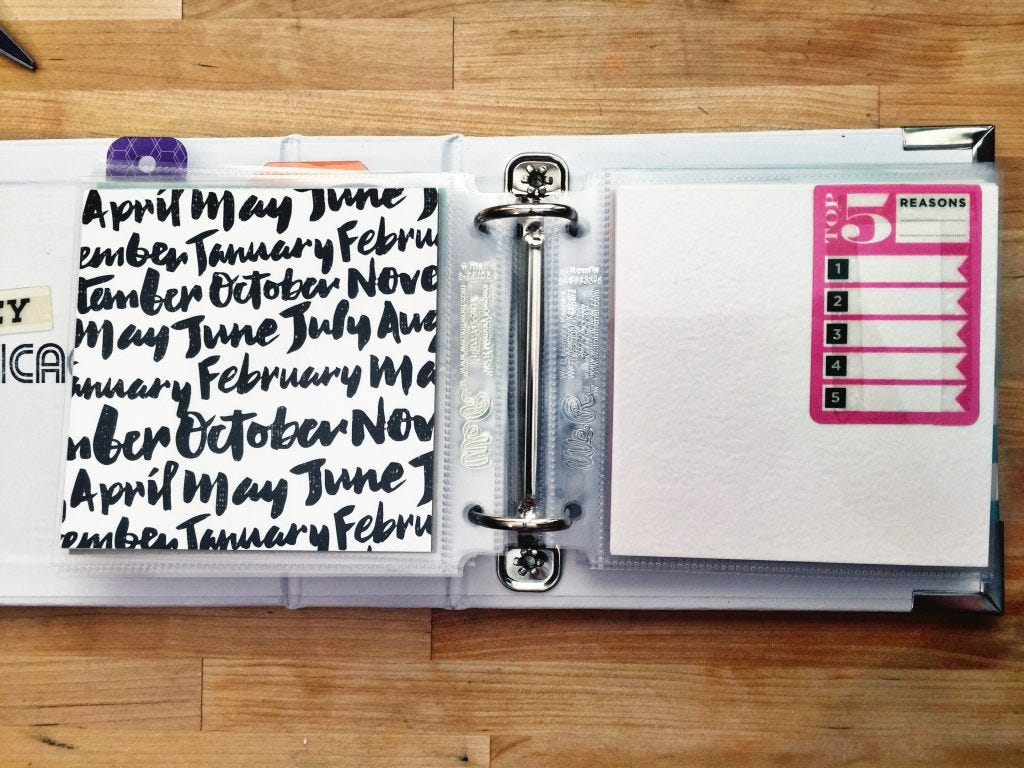 EY
ICA
April May June J
ember January Febru
tember October Nove
May June July Aug
anuary February Ma
mber October Nov
April May June J
ember January Febru
We R
TOP
5
REASONS
1
2
3
4
5